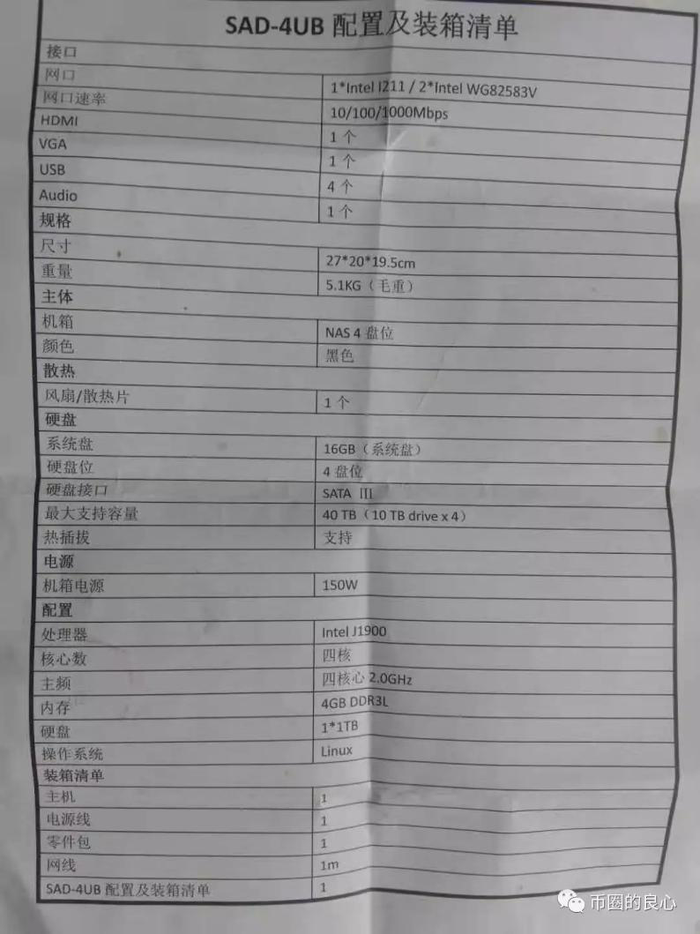 SAD-4UB 配置及装箱清单
接口
网口 1*Intel I211 / 2*Intel WG82583V
网口速率 10/100/1000Mbps
HDMI 1 个
VGA 1 个
USB 4 个
Audio 1 个
规格
尺寸 27*20*19.5cm
重量 5.1KG（毛重）
主体
机箱 NAS 4 盘位
颜色 黑色
散热
风扇/散热片 1 个
硬盘
系统盘 16GB（系统盘）
硬盘位 4 盘位
硬盘接口 SATA III
最大支持容量 40 TB（10 TB drive x 4）
热插拔 支持
电源
机箱电源 150W
配置
处理器 Intel J1900
核心数 四核
主频 四核心 2.0GHz
内存 4GB DDR3L
硬盘 1*1TB
操作系统 Linux
装箱清单
主机 1
电源线 1
零件包 1
网线 1m
SAD-4UB 配置及装箱清单 1
币圈的良心